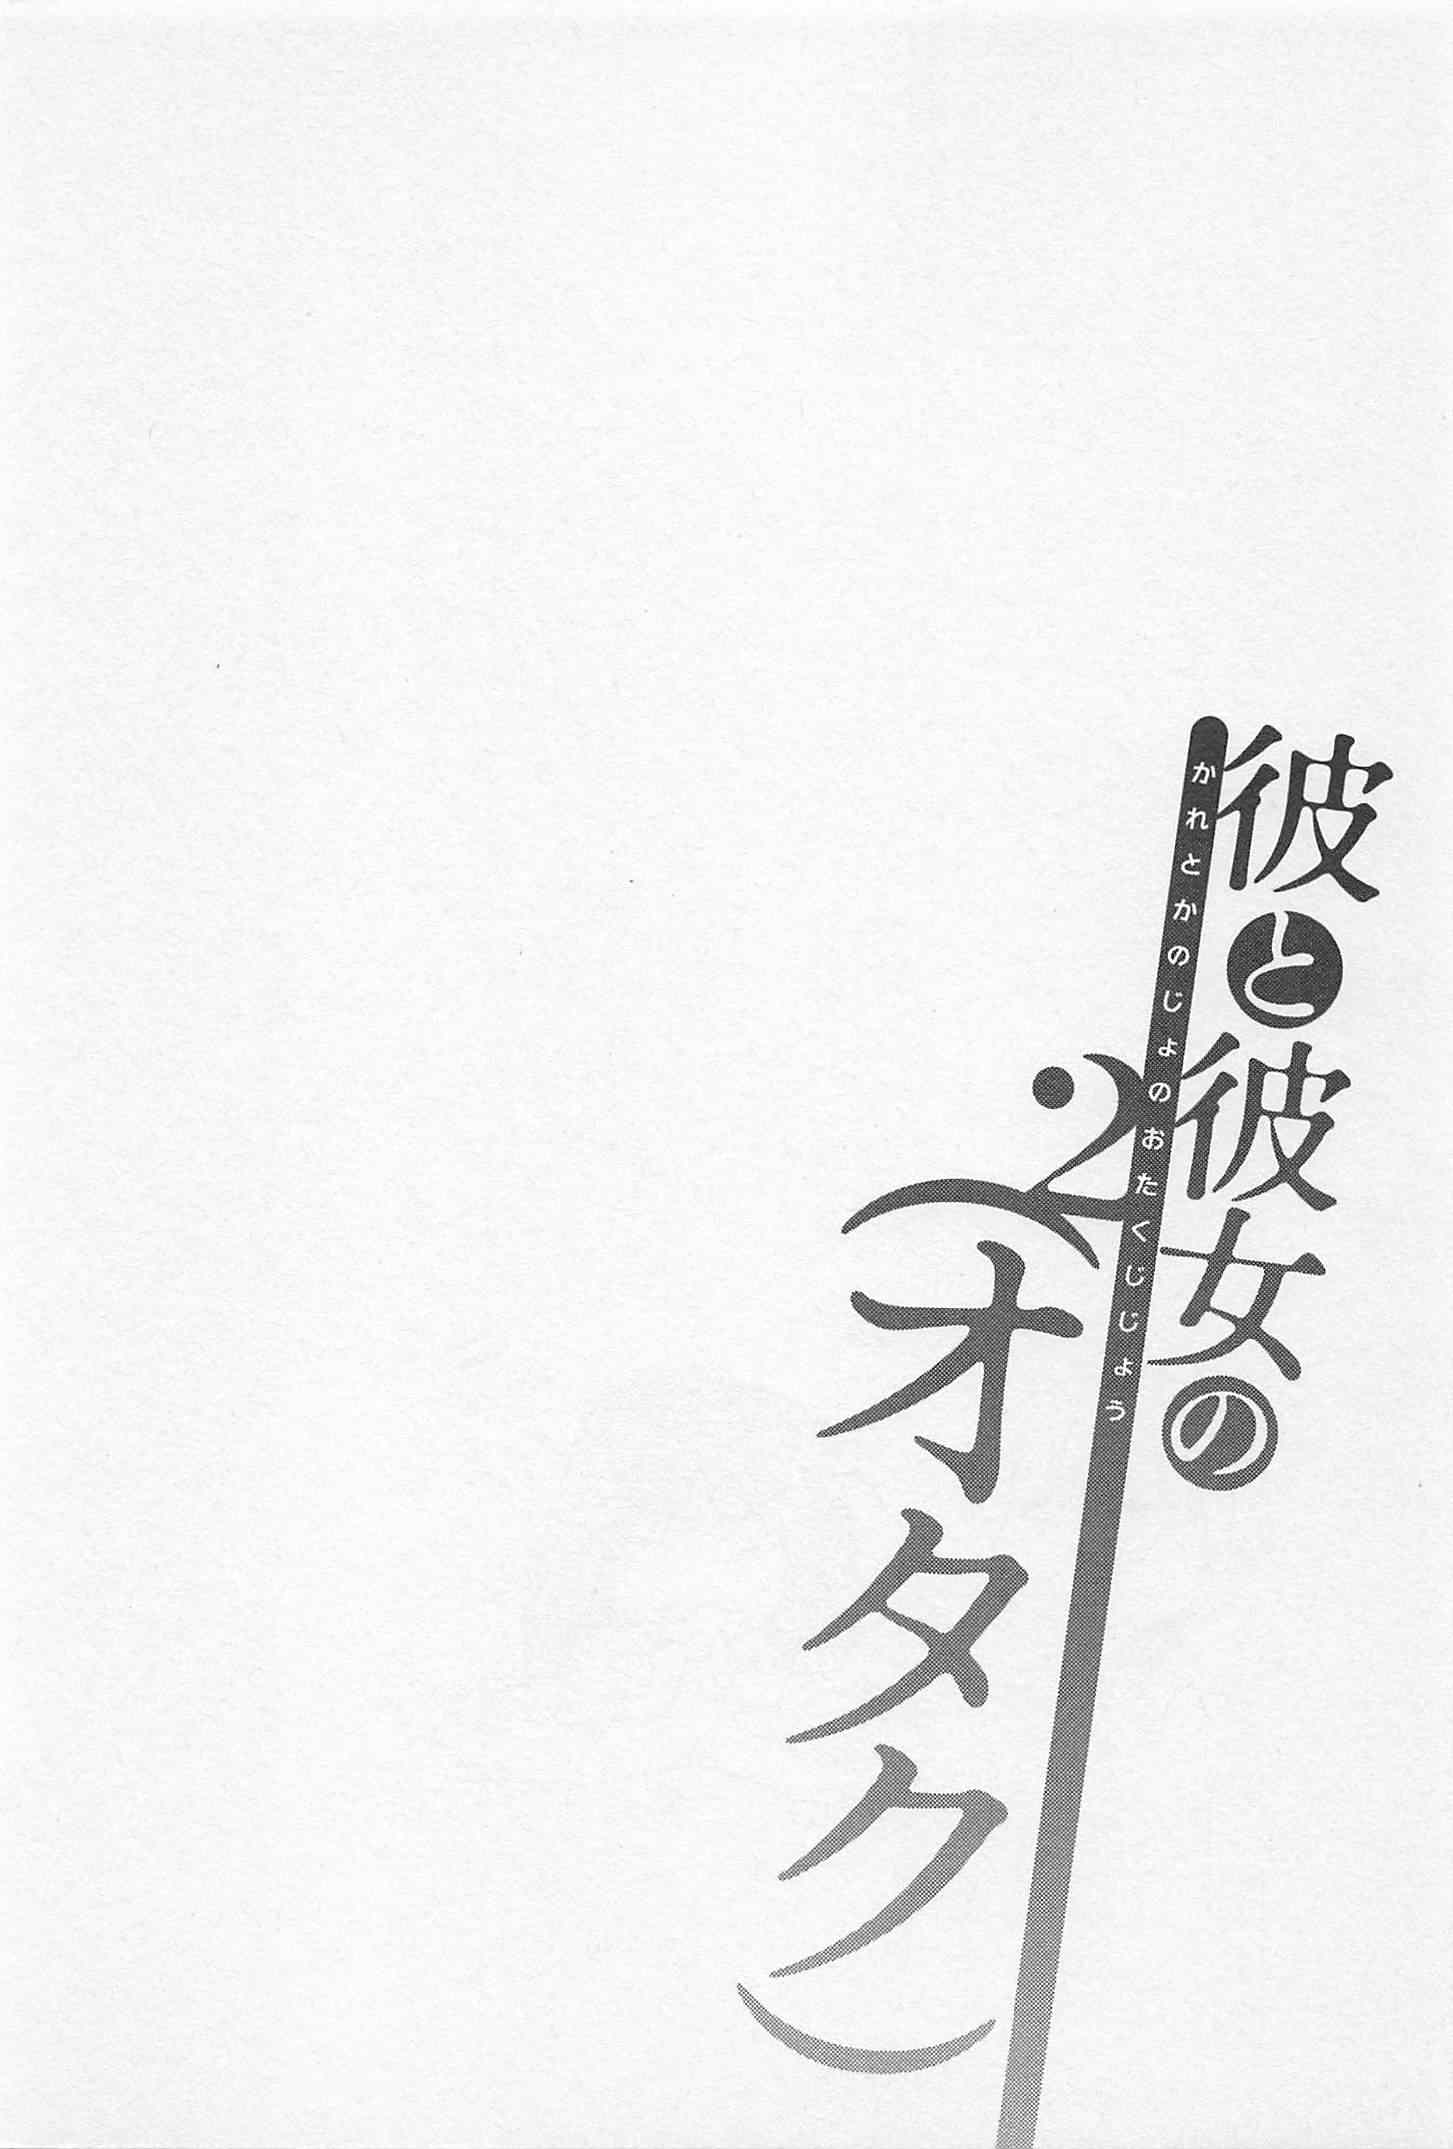 彼と彼女の
かれとかのじょのおたくじじょう
(オタク)2